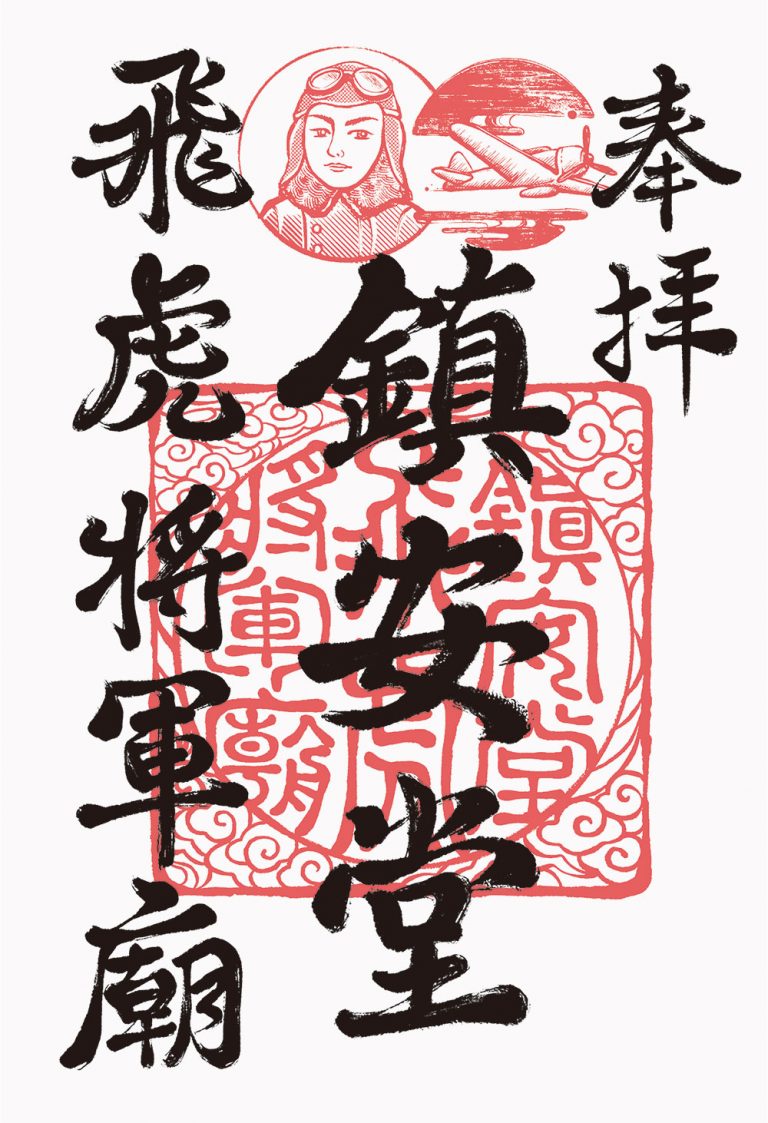 奉拝
鎮安堂
飛虎將軍廟
鎮安堂
飛虎
將軍廟